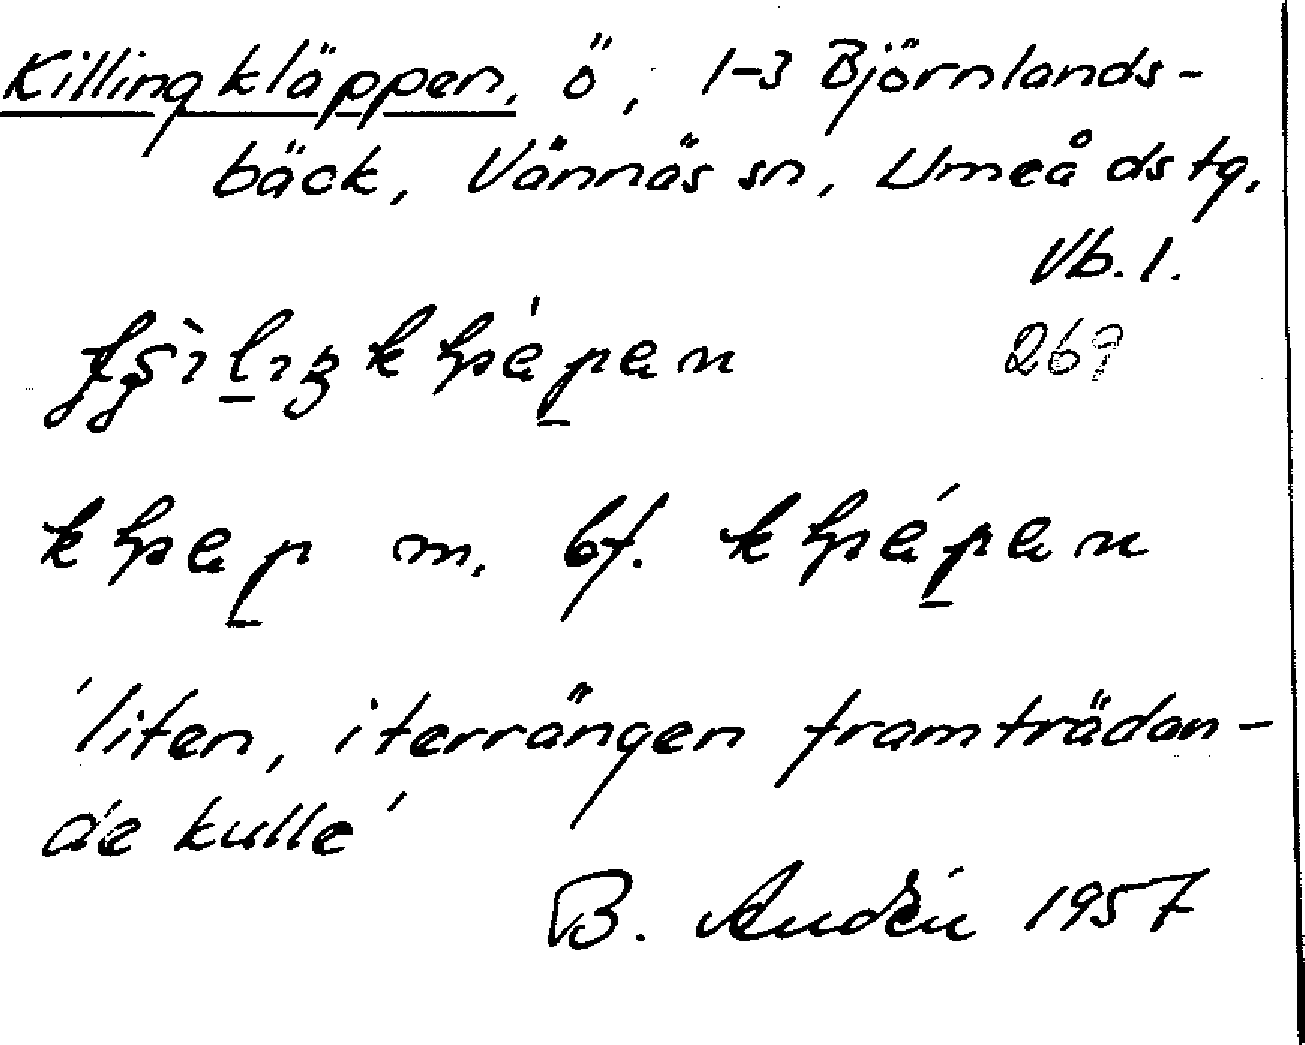 Killingkläppen, ö, 1-3 Björnlands-
bäck, Vännäs sn, Umeå dstg.
Vb. l.
269
m. bf.
'liten, i terrängen framträdan-
de kulle'
B. Audén 1957